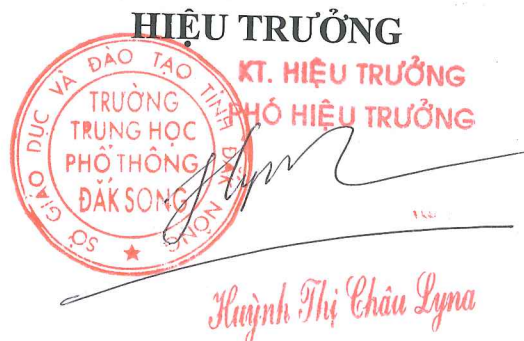 HIỆU TRƯỞNG
KT. HIỆU TRƯỞNG
PHÓ HIỆU TRƯỞNG
SỞ GIÁO DỤC VÀ ĐÀO TẠO TỈNH ĐĂK NÔNG
TRƯỜNG
TRUNG HỌC
PHỔ THÔNG
ĐĂK SONG
Huỳnh Thị Châu Lyna